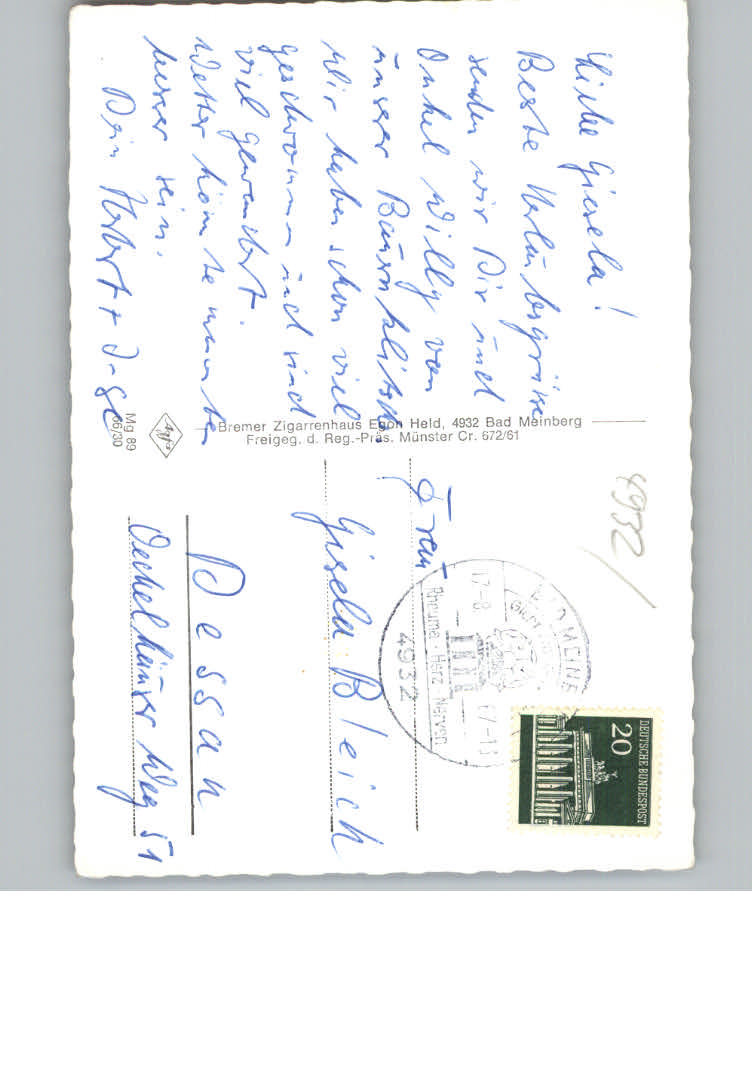 Liebe Giesela!
Beste Urlaubsgrüsse
senden wir Dir und
Onkel Willy von
unserer Bäuernklitsche
Wir haben schon viel
geschwommen und sind
viel gewandert.
Wetter könnte manchmal
besser sein.
Dein Herbert + Inge
Bremer Zigarrenhaus Egon Held, 4932 Bad Meinberg
Freigeg. d. Reg.-Präs. Münster Cr. 672/61
Agfa
Mg 89
66/30
4932
DEUTSCHE BUNDESPOST
20
BAD MEINB
17-8
67-18
Rheuma · Herz · Nerven
4932
Frau
Gisela Bleich
Dessau
Oechelhäuser Weg 51